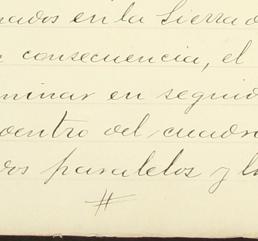 nados en la Sierra d
consecuencia, el
minar en seguid
dentro del cuadr
ros paralelos y l
#